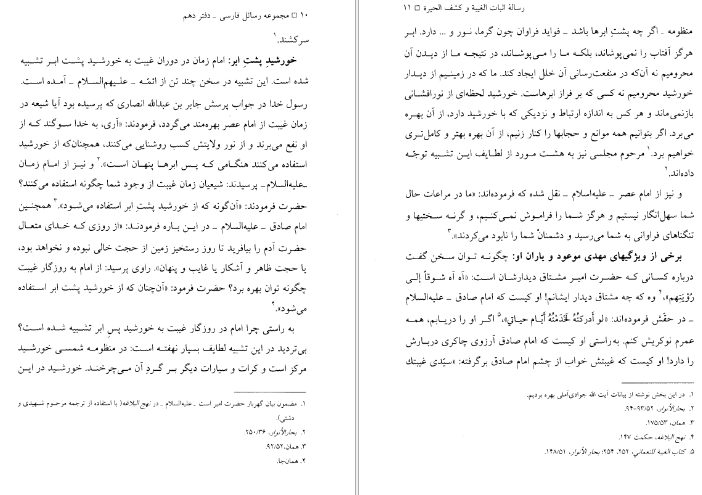 ۱۰ □ مجموعه رسائل فارسی ـ دفتر دهم
سرکشند.۱
خورشیدِ پشتِ ابر: امام زمان در دوران غیبت به خورشید پشت ابر تشبیه
شده است. این تشبیه در سخن چند تن از ائمّه ـ علیهم‌السلام ـ آمده است.
رسول خدا در جواب پرسش جابر بن عبدالله انصاری که پرسیده بود آیا شیعه در
زمان غیبت از امام عصر بهره‌مند می‌گردد، فرمودند: «آری، به خدا سوگند که از
او نفع می‌برند و از نور ولایتش کسب روشنایی می‌کنند، همچنان‌که از خورشید
استفاده می‌کنند هنگامی که پس ابرها پنهان است».۲ و نیز از امام زمان
ـ علیه‌السلام ـ پرسیدند: شیعیان زمان غیبت از وجود شما چگونه استفاده می‌کنند؟
حضرت فرمودند: «آن‌گونه که از خورشید پشتِ ابر استفاده می‌شود».۳ همچنین
امام صادق ـ علیه‌السلام ـ در این باره فرمودند: «از روزی که خدای متعال
حضرت آدم را بیافرید تا روز رستخیز زمین از حجت خالی نبوده و نخواهد بود،
یا حجت ظاهر و آشکار یا غایب و پنهان». راوی پرسید: از امام به روزگار غیبت
چگونه توان بهره برد؟ حضرت فرمود: «آن‌چنان که از خورشید پشت ابر استفاده
می‌شود».۴
به راستی چرا امام در روزگار غیبت به خورشید پسِ ابر تشبیه شده است؟
بی‌تردید در این تشبیه لطایف بسیار نهفته است: در منظومه شمسی خورشید
مرکز است و کرات و سیارات دیگر بر گردِ آن می‌چرخند. خورشید در این
۱. مضمون بیان گهربار حضرت امیر است ـ علیه‌السلام ـ در نهج البلاغه (با استفاده از ترجمه مرحوم شهیدی و
دشتی).
۲. بحارالأنوار، ۲۵۰/۳۶.
۳. همان، ۹۲/۵۲.
۴. همان‌جا.
رسالة اثبات الغیبة و کشف الحیرة □ ۱۱
منظومه ـ اگر چه پشتِ ابرها باشد ـ فواید فراوان چون گرما، نور و ... دارد. ابر
هرگز آفتاب را نمی‌پوشاند، بلکه ما را می‌پوشاند، در نتیجه ما از دیدن آن
محرومیم نه آن‌که در منفعت‌رسانی آن خلل ایجاد کند. ما که در زمینیم از دیدار
خورشید محرومیم نه کسی که بر فراز ابرهاست. خورشید لحظه‌ای از نورافشانی
بازنمی‌ماند و هر کس به اندازه ارتباط و نزدیکی که با خورشید دارد، از آن بهره
می‌برد. اگر بتوانیم همه موانع و حجابها را کنار زنیم، از آن بهره بهتر و کامل‌تری
خواهیم برد.۱ مرحوم مجلسی نیز به هشت مورد از لطایف این تشبیه توجّه
داده‌اند.۲
و نیز از امام عصر ـ علیه‌السلام ـ نقل شده که فرموده‌اند: «ما در مراعات حال
شما سهل‌انگار نیستیم و هرگز شما را فراموش نمی‌کنیم، و گرنه سختیها و
تنگناهای فراوانی به شما می‌رسید و دشمنانْ شما را نابود می‌کردند».۳
برخی از ویژگیهای مهدی موعود و یاران او: چگونه توان سخن گفت
درباره کسانی که حضرت امیر مشتاق دیدارشان است: «آه آه شوقاً إلی
رؤیتهم»۴ وه که چه مشتاق دیدار ایشانم! او کیست که امام صادق ـ علیه‌السلام
ـ در حقّش فرموده‌اند: «لو أدرکتُهُ لَخَدَمتُهُ أیّام حیاتي»،۵ اگر او را دریابم، همه
عمرم نوکریش کنم. به راستی او کیست که امام صادق آرزوی چاکری دربارش
را دارد! او کیست که غیبتش خواب از چشم امام صادق برگرفته: «سیّدي غیبتك
۱. در این بخش نوشته از بیانات آیت الله جوادی‌آملی بهره بردیم.
۲. بحارالأنوار، ۹۳/۵۲-۹۴.
۳. همان، ۱۷۵/۵۳.
۴. نهج البلاغه، حکمت ۱۴۷.
۵. کتاب الغیبة للنعمانی، ۲۵۲، ۲۵۴؛ بحار الأنوار، ۱۴۸/۵۱.